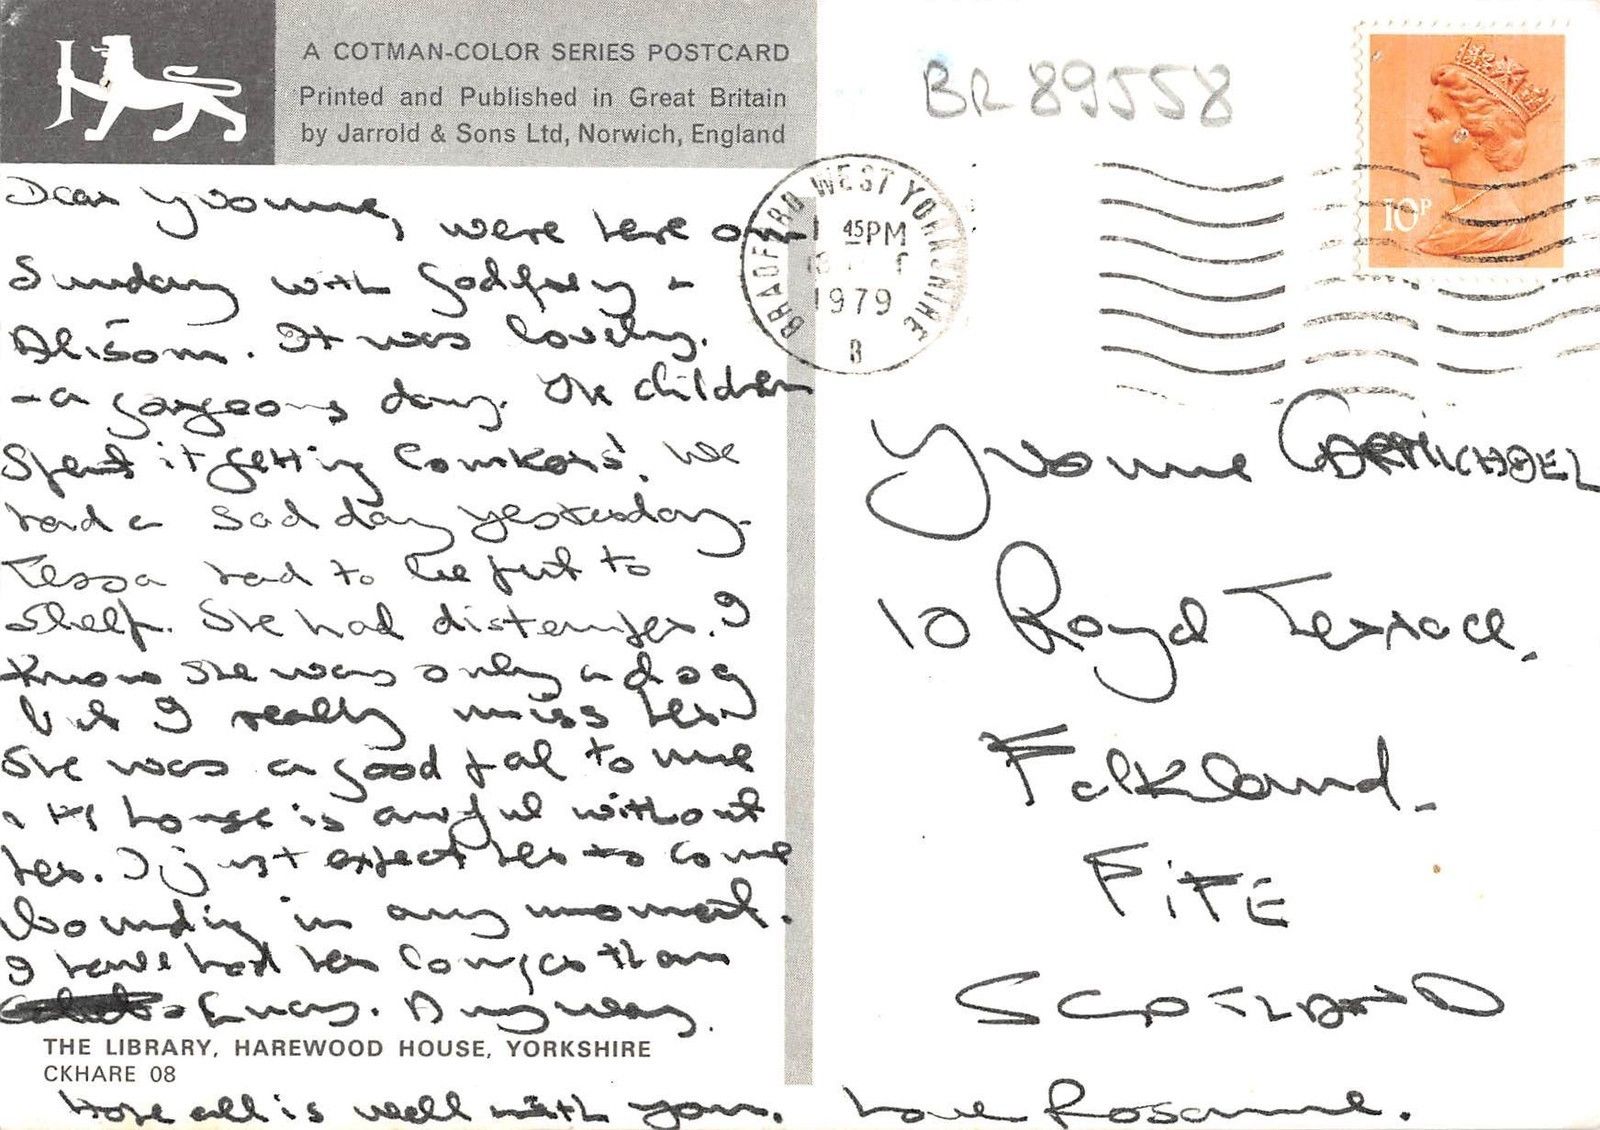 A COTMAN-COLOR SERIES POSTCARD
Printed and Published in Great Britain
by Jarrold & Sons Ltd, Norwich, England
BR 89558
10P
BRADFORD WEST YORKSHIRE
45PM
1979
B
Dear Yvonne,
were here on
Sunday with Godfrey &
Alison. It was lovely.
- a gorgeous day. The children
spent it getting conkers! We
had a sad day yesterday.
Tessa had to be put to
sleep. She had distemper. I
know she was only a dog
but I really miss her.
She was a good pal to me
& the house is awful without
her. I just expect her to come
bounding in any moment.
I have had her longer than
Lucy. Anyway.
THE LIBRARY, HAREWOOD HOUSE, YORKSHIRE
CKHARE 08
Hope all is well with you.
Love Rosanne.
Yvonne CARMICHAEL
10 Royal Terrace.
Falkland.
FIFE
SCOTLAND